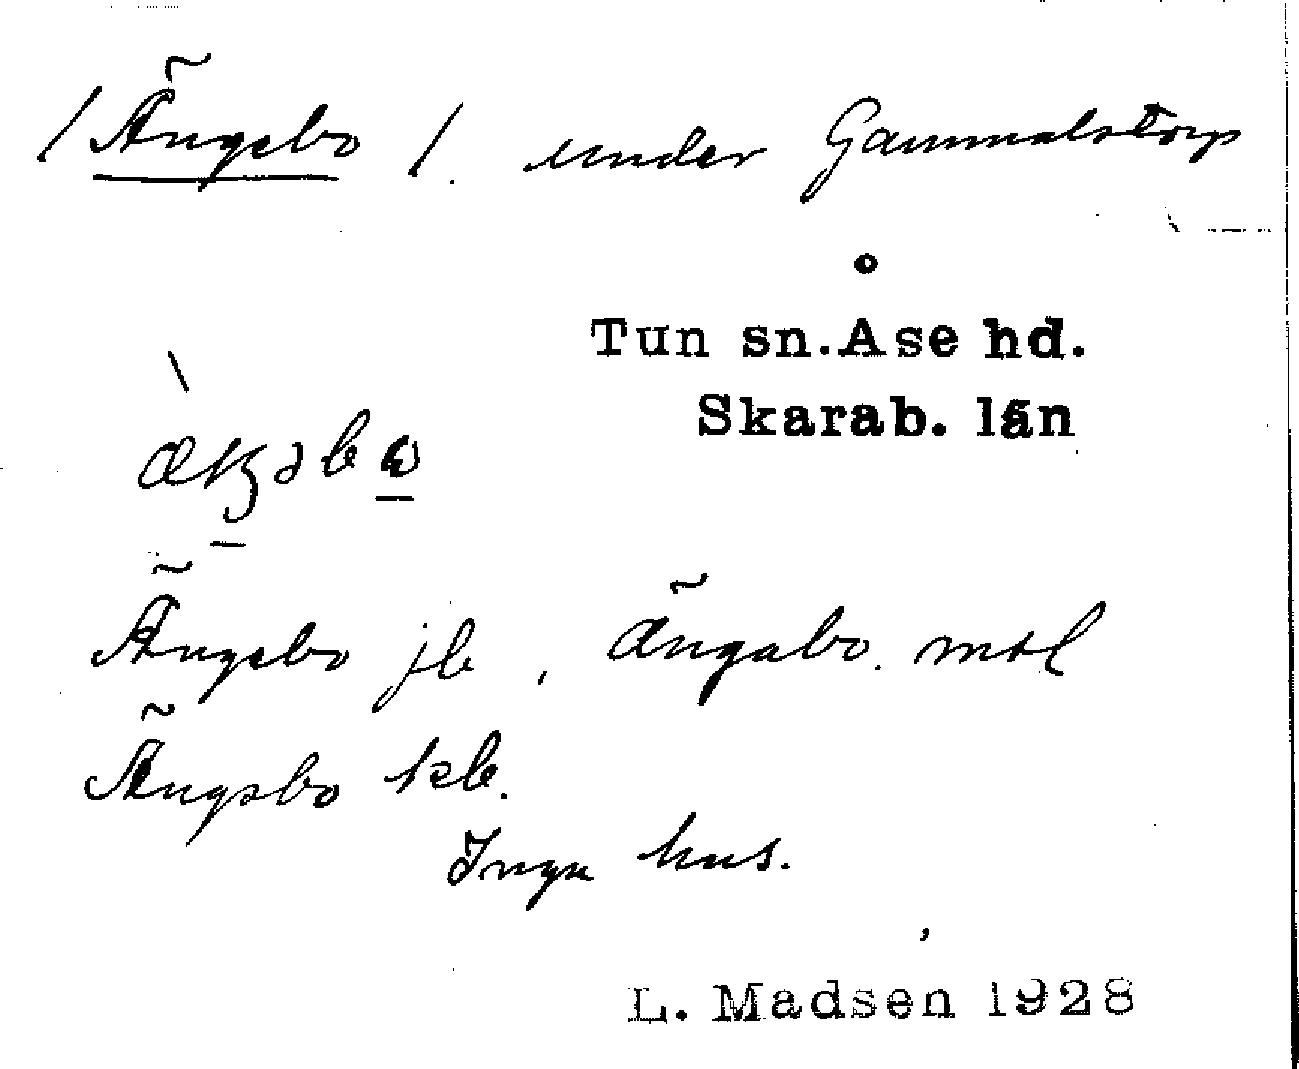 /Ängsbo/. under Gammalstorp
Tun sn. Åse hd.
Skarab. län
Ängsbo jb, Ängabo. mtl
Ängsbo kb.
Inga hus.
L. Madsen 1928